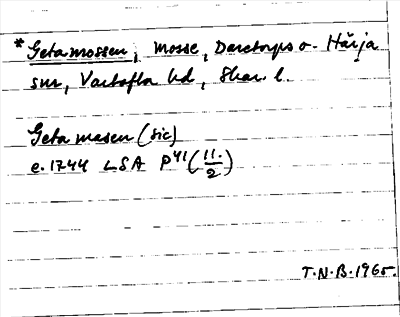 *Getamossen, mosse, Daretorps o. Härja
snr, Vartofta hd, Skar. l.
Geta masen (sic)
e. 1744 LSA P41 (11./2)
T.N.B. 1965.